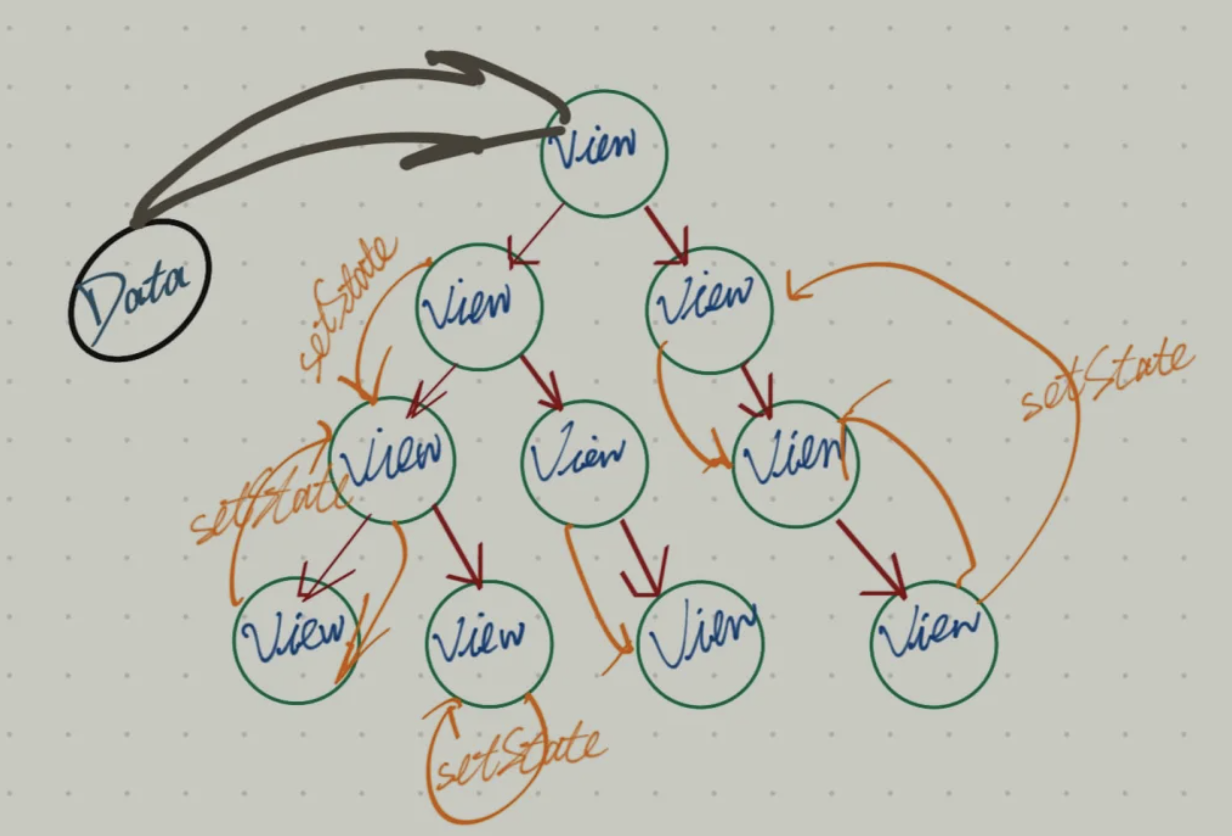 View
Data
setState
View
View
setState
View
View
View
setState
View
View
View
View
setState